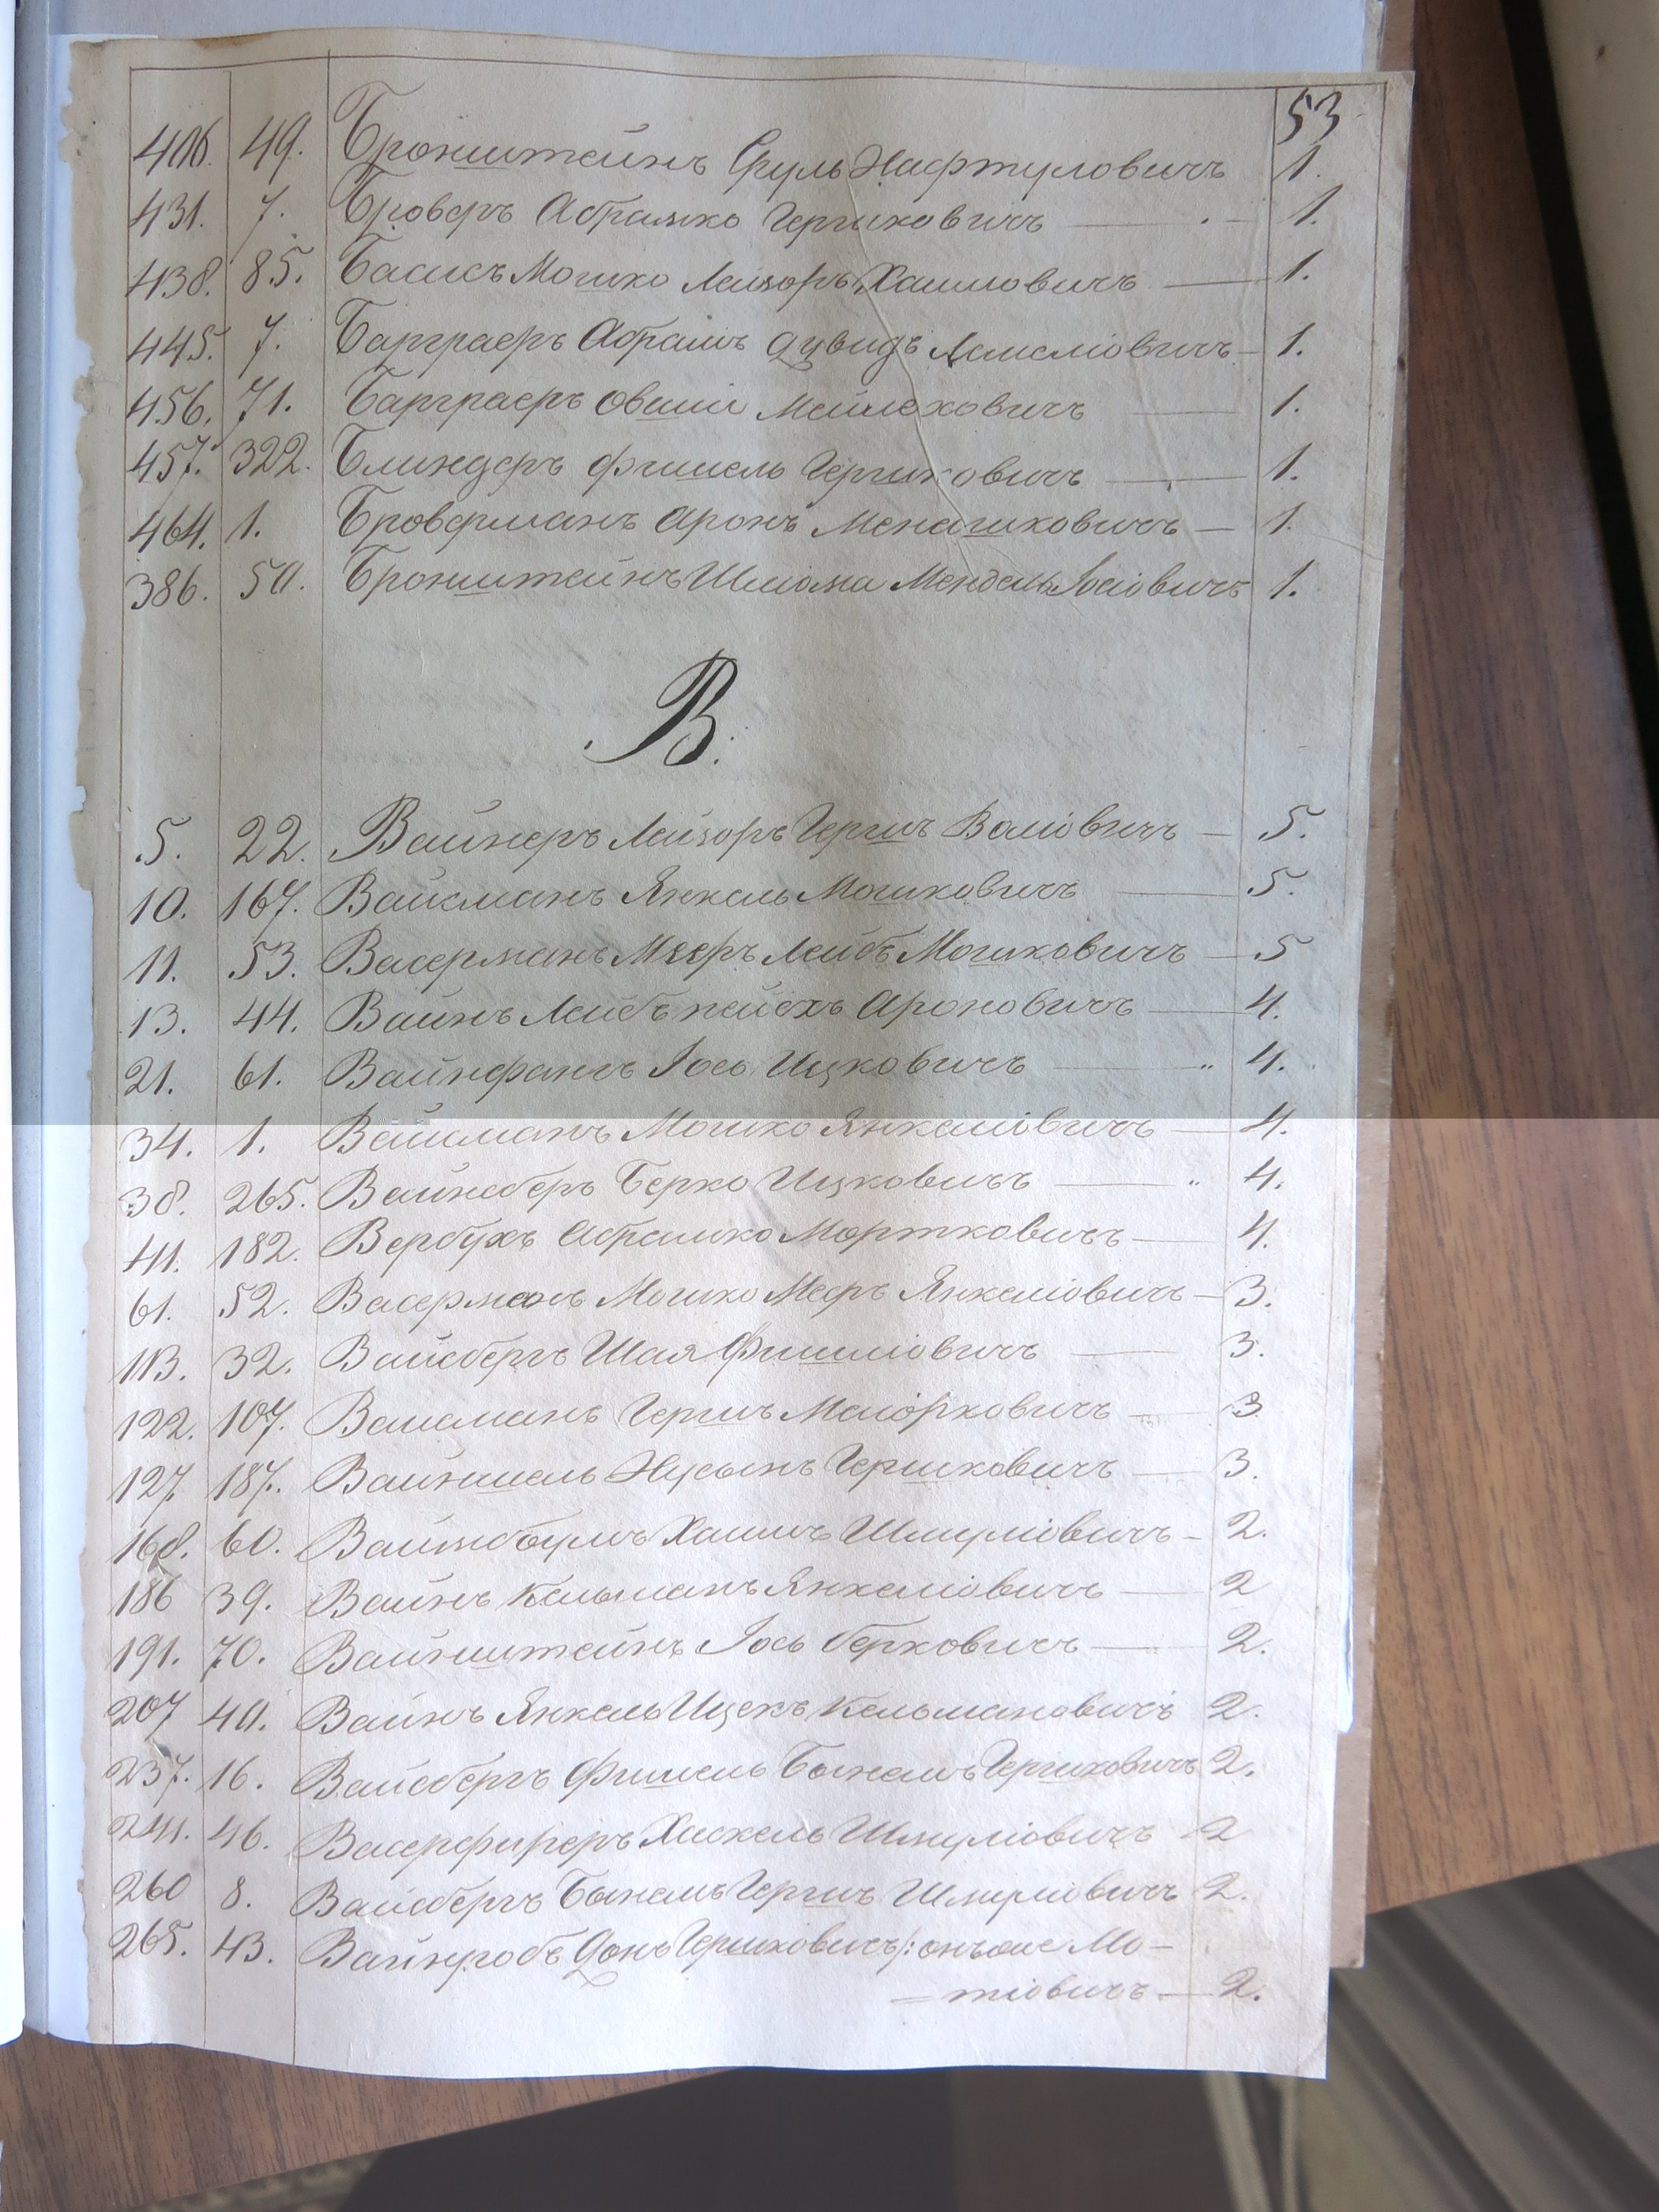 53
406. 49. Бронштейнъ Сруль Нафтуловичъ 1.
431. 7. Броверъ Абрамко Гершковичъ 1.
438. 85. Басисъ Мошко Лейзоръ Хаимовичъ 1.
445. 7. Барграеръ Абрамъ Дувидъ 1.
456. 71. Барграеръ Овшій Мейлеховичъ 1.
457. 322. Блиндеръ Фишель Гершковичъ 1.
464. 1. Броверманъ Аронъ Менашковичъ 1.
386. 50. Бронштейнъ Шліома Мендель Іосіовичъ 1.
В.
5. 22. Вайнеръ Лейзоръ Гершъ Воліовичъ 5.
10. 167. Вайсманъ Янкель Мошковичъ 5.
11. 53. Васерманъ Мееръ Лейбъ Мошковичъ 5
13. 44. Вайнъ Лейбъ Пейсхъ Ароновичъ 4.
21. 61. Іось Ицковичъ „ 4.
34. 1. Вайсманъ Мошко Янкеліовичъ 4.
38. 265. Берко Ицковичъ „ 4.
41. 182. Вербухъ Абрамко Мортковичъ 4.
61. 52. Васерманъ Мошко Меръ Янкеліовичъ 3.
113. 32. Вайсбергъ Шая Фишліовичъ 3.
122. 107. Вайсманъ Гершъ Меіорковичъ 3
127. 187. Вайншель Нусынъ Гершковичъ 3.
168. 60. Хаимъ Шмуліовичъ 2.
186 39. Вайнъ Кельманъ Янкеліовичъ 2
191. 70. Вайнштейнъ Іось Берковичъ 2.
207 40. Вайнъ Янкель Ицекъ Кельмановичъ 2.
237. 16. Вайсбергъ Фишель Бынемъ Гершковичъ 2.
241. 46. Васерфиреръ Хаскель Шмуліовичъ 2
260 8. Вайсбергъ Бынемъ Гершъ Шмуліовичъ 2.
265. 43. Вайнгробъ Донъ Гершковичъ /: онъже Мо-
=тіовичъ 2.